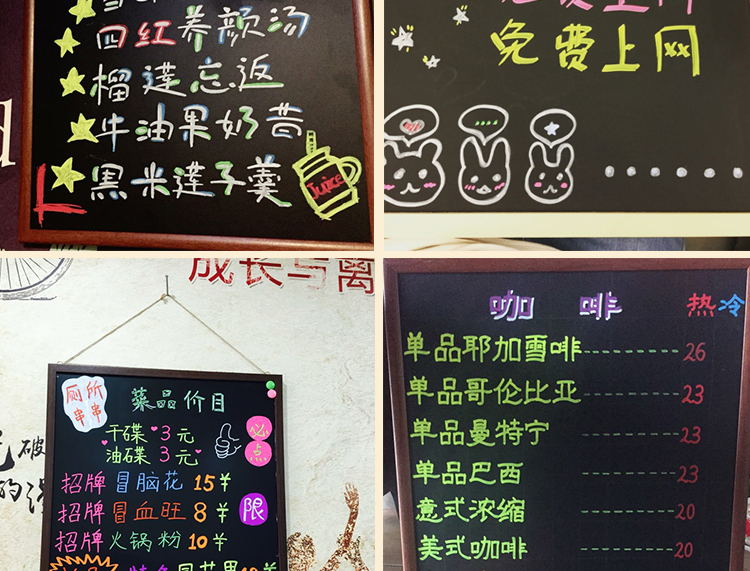 四红养颜汤
榴莲忘返
牛油果奶昔
黑米莲子羹
Juice
免费上网
成长与离
厕所
串串
菜品价目
干碟 3元
油碟 3元
必点
招牌 冒脑花 15¥
招牌 冒血旺 8¥
限
招牌 火锅粉 10¥
破
的
咖啡 热 冷
单品耶加雪啡 26
单品哥伦比亚 23
单品曼特宁 23
单品巴西 23
意式浓缩 20
美式咖啡 20